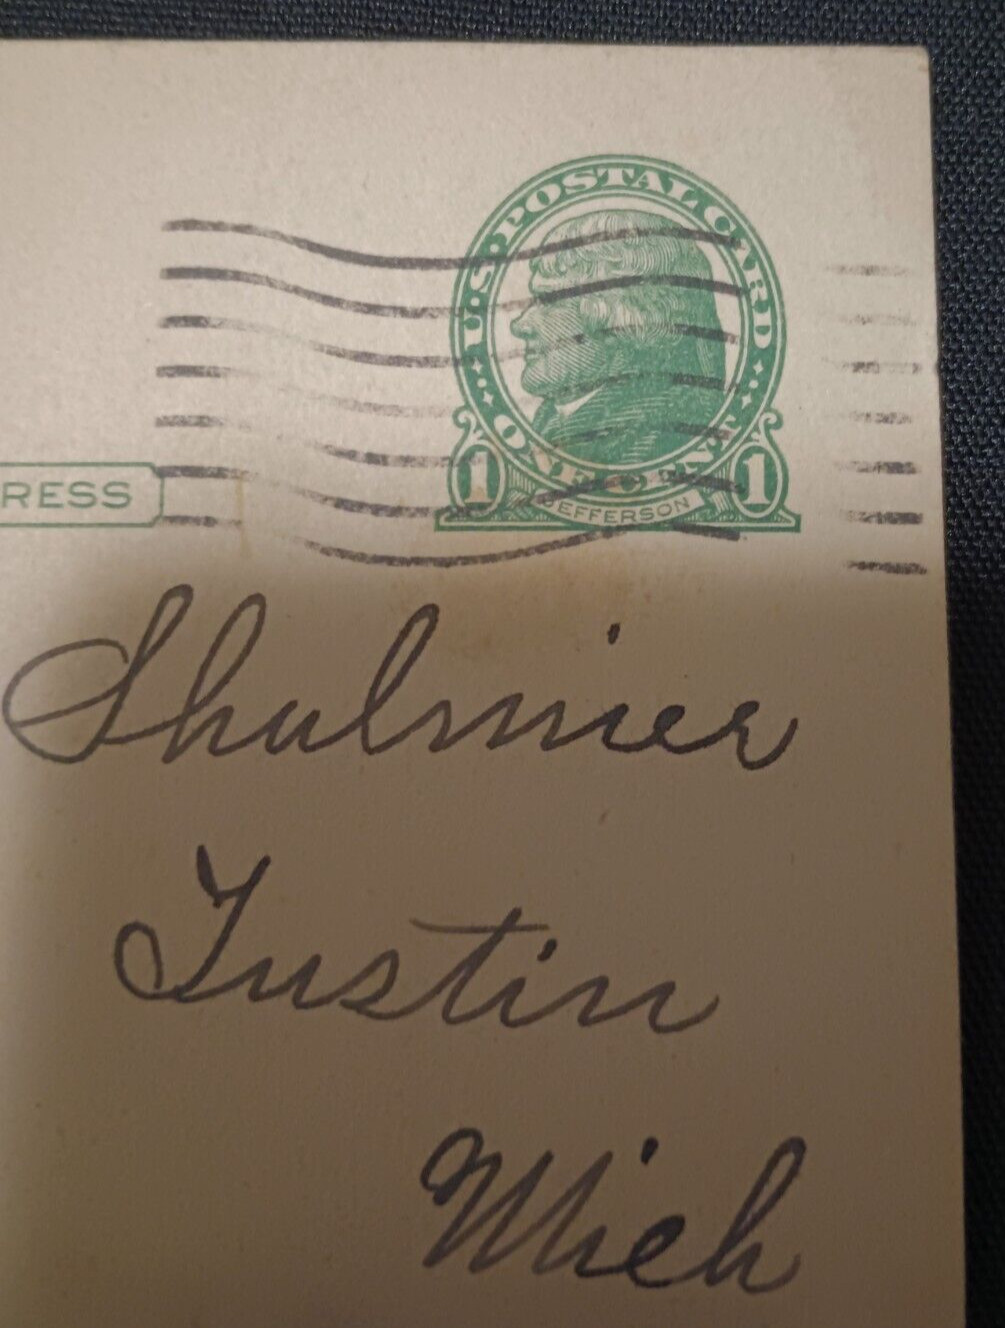 U.S. POSTAL CARD
1 ONE CENT 1
JEFFERSON
RESS
Shulmier
Tustin
Mich